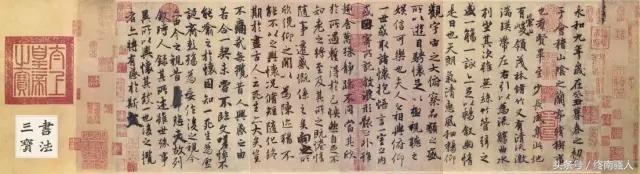 永和九年歲在癸丑暮春之初會
于會稽山陰之蘭亭脩稧事
也群賢畢至少長咸集此地
有崇山峻領茂林脩竹又有清流激
湍暎帶左右引以為流觴曲水
列坐其次雖無絲竹管弦之
盛一觴一詠亦足以暢敘幽情
是日也天朗氣清惠風和暢仰
觀宇宙之大俯察品類之盛
所以遊目騁懷足以極視聽之
娛信可樂也夫人之相與俯仰
一世或取諸懷抱悟言一室之內
或因寄所託放浪形骸之外雖
趣舍萬殊靜躁不同當其欣
於所遇蹔得於己怏然自足不
知老之將至及其所之既惓情
隨事遷感慨係之矣向之所
欣俛仰之閒以為陳迹猶不
能不以之興懷況脩短隨化終
期於盡古人云死生亦大矣豈
不痛哉每攬昔人興感之由
若合一契未嘗不臨文嗟悼不
能喻之於懷固知一死生為虛
誕齊彭殤為妄作後之視今
亦由今之視昔悲夫故列
敘時人錄其所述雖世殊事
異所以興懷其致一也後之攬
者亦將有感於斯文
太上皇帝之寶
書法三寶
头条号 / 终南骚人